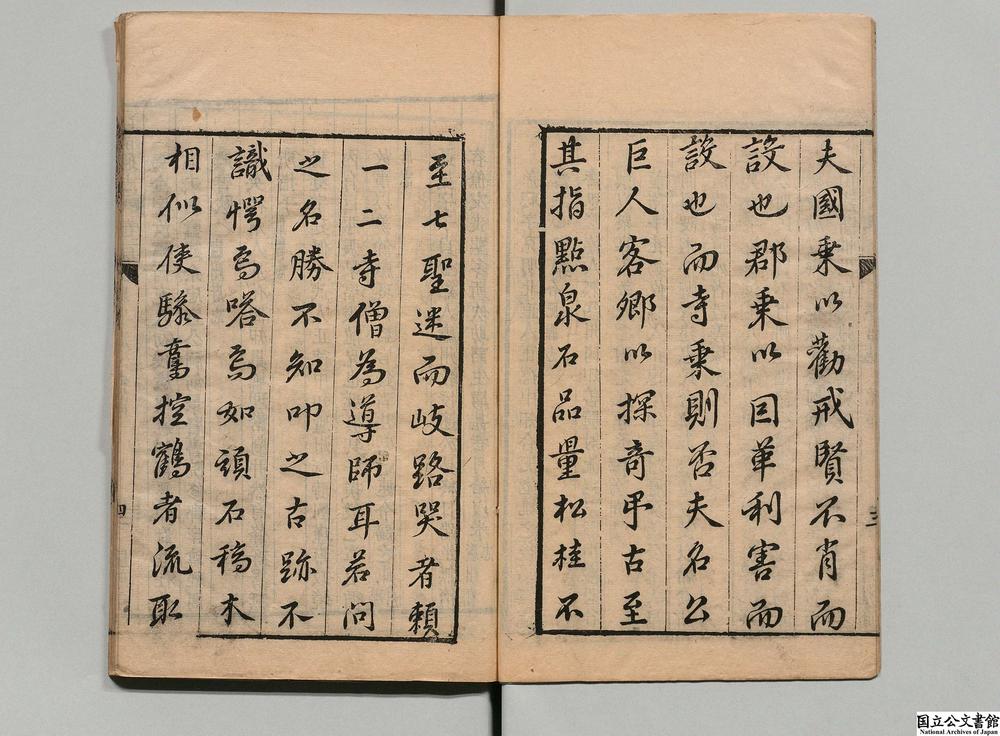 夫國乗以勸戒賢不肖而
設也郡乗以因革利害而
設也而寺乗則否夫名公
巨人客鄉以探竒弔古至
其指點泉石品量松桂不
至七聖迷而岐路哭者頼
一二寺僧為導師耳若問
之名勝不知叩之古跡不
識愕焉嗒焉如頑石稿木
相似使驂鸞控鶴者流取
四
国立公文書館
National Archives of Japan